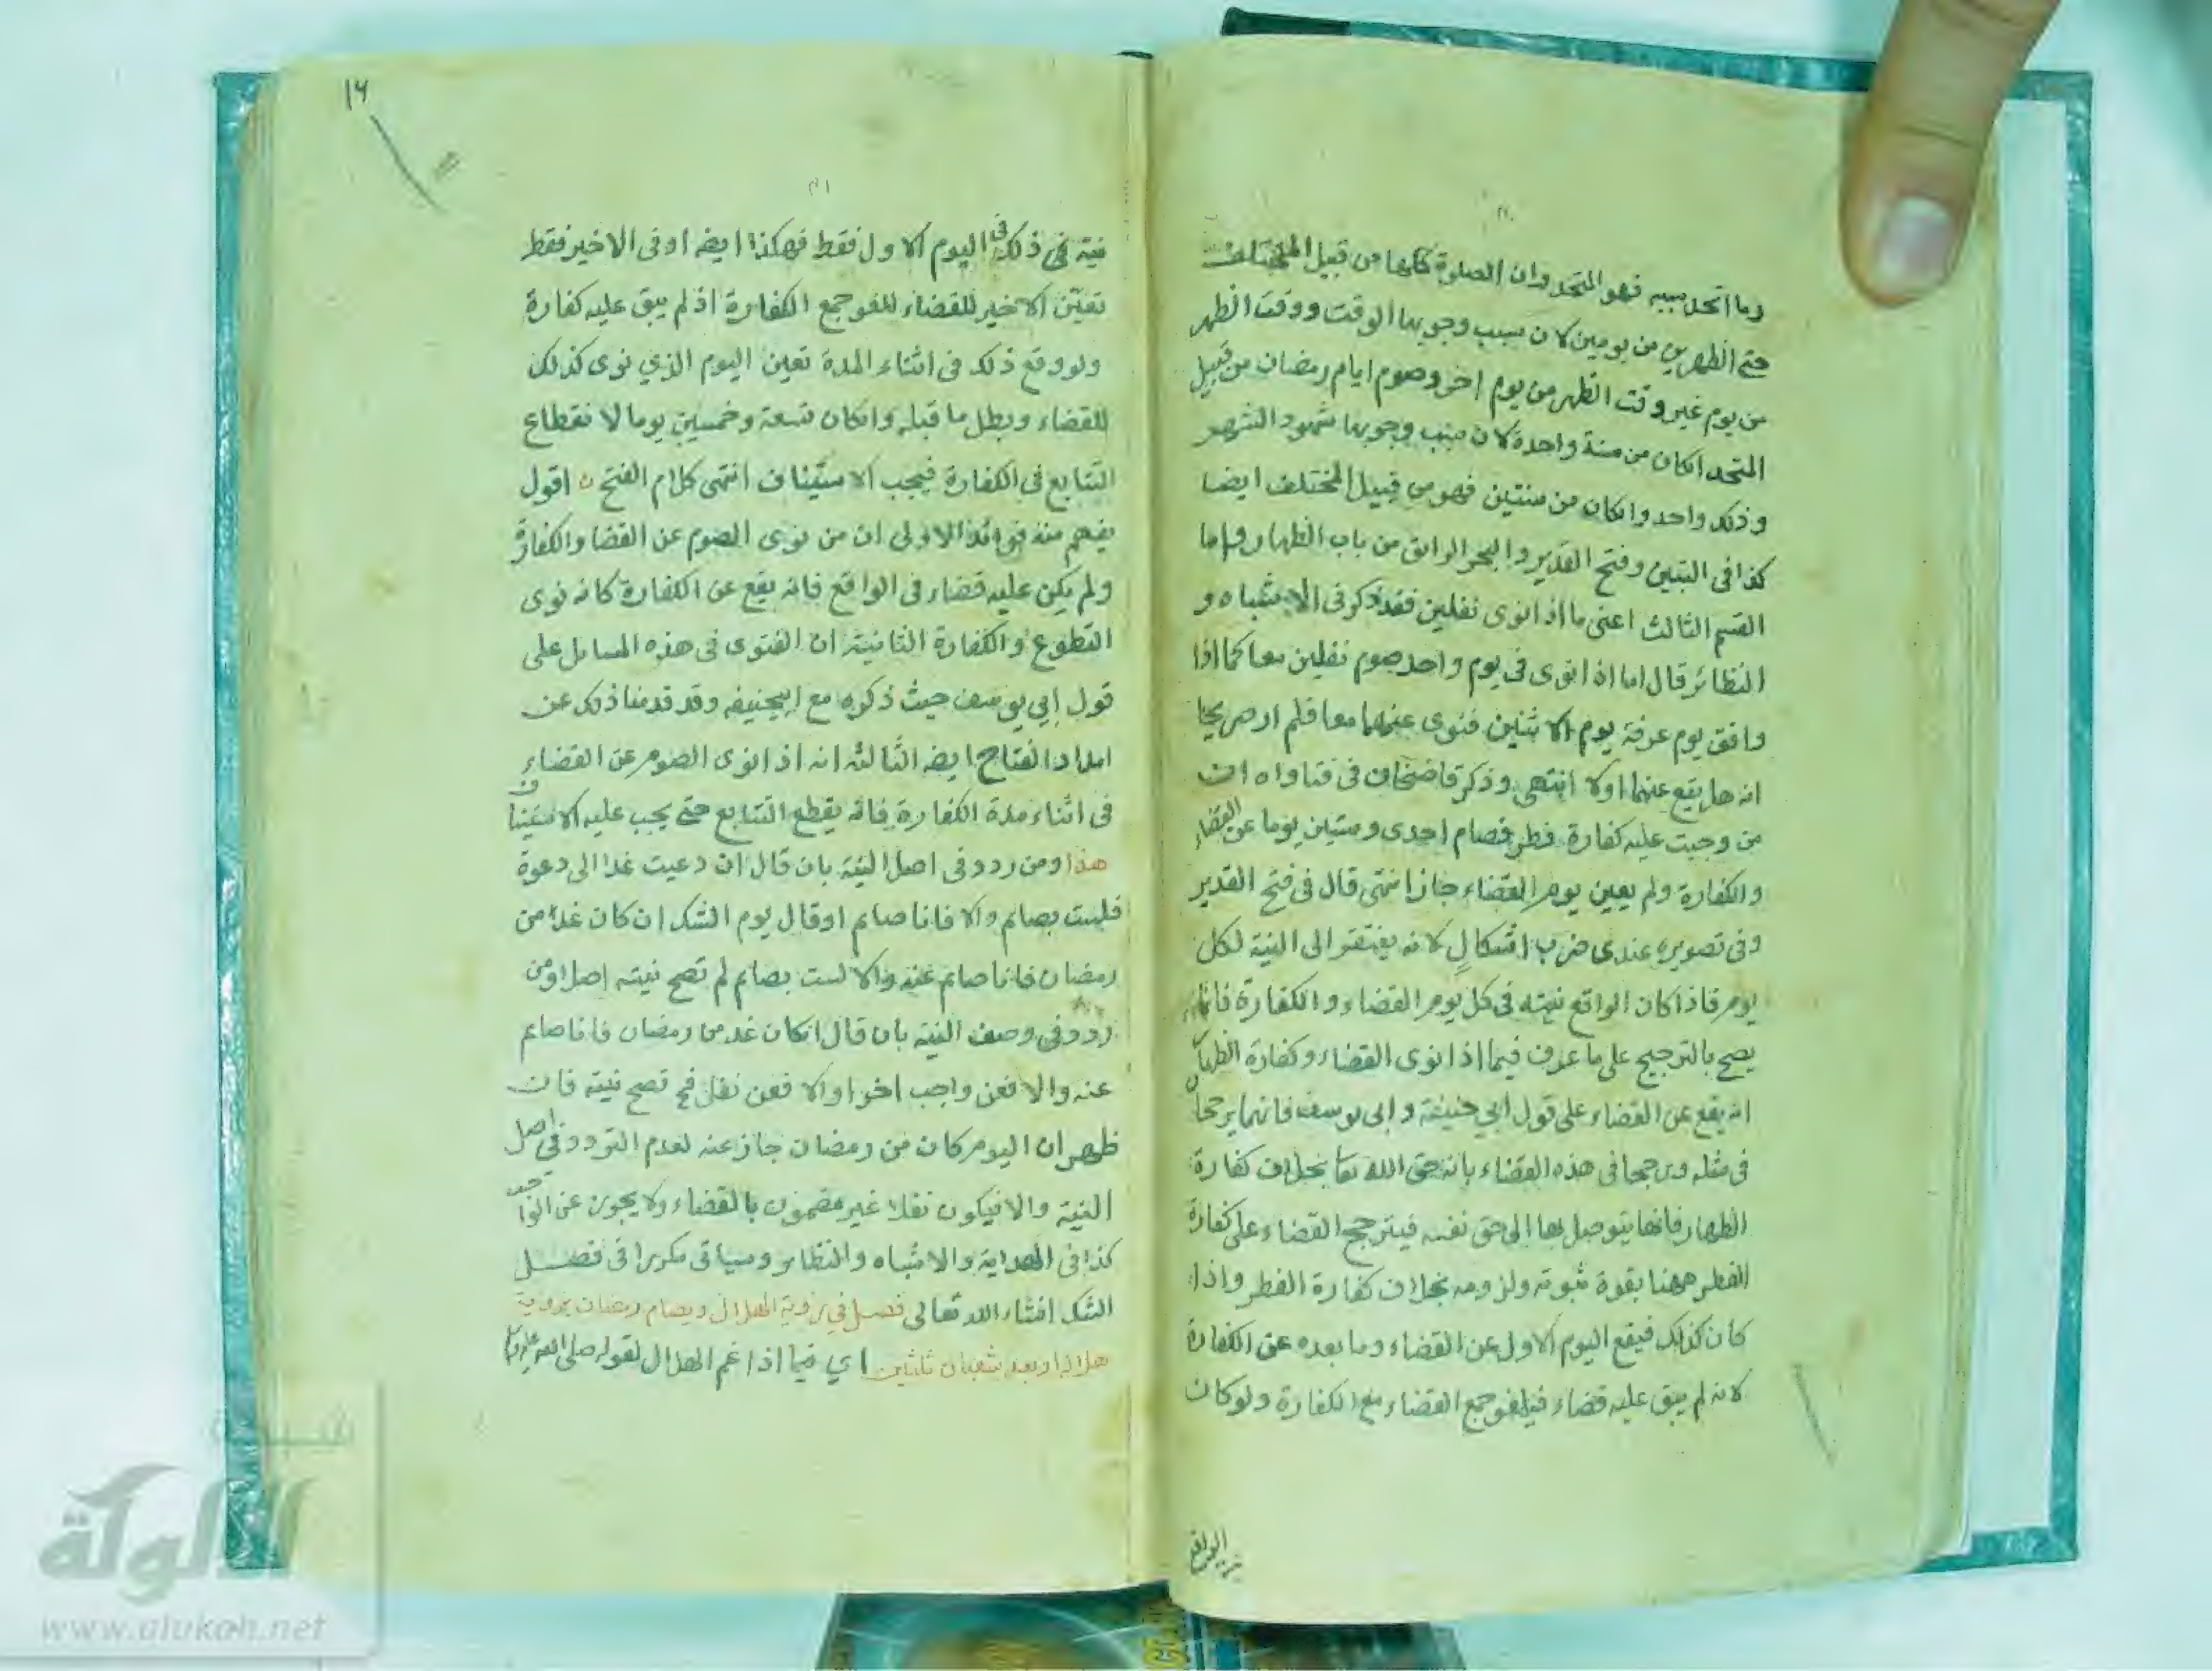 وما اتحد سببه فهو المتحد وان الصلوة كلها من قبيل المختلف
حتى الظهرين من يومين لان سبب وجوبها الوقت ووقت الظهر
من يوم غير وقت الظهر من يوم اخر وصوم ايام رمضان من قبيل
المتحد انكان من سنة واحدة لان سبب وجوبها شهود الشهر
وذلك واحد وانكان من سنتين فهو من قبيل المختلف ايضا
كذا فى التبيين وفتح القدير والبحر الرائق من باب الظهار واما
القسم الثالث اعنى ما اذا نوى نفلين فقد ذكر فى الاشباه و
النظائر قال اما اذا نوى فى يوم واحد صوم نفلين معا كما اذا
وافق يوم عرفة يوم الاثنين فنوى عنهما معا فلم ار صريحا
انه هل يقع عنهما اولا انتهى وذكر قاضخان فى فتاواه ان
من وجبت عليه كفارة فطر فصام احدى وستين يوما عن القضاء
والكفارة ولم يعين يوم القضاء جاز انتهى قال فى فتح القدير
وفى تصويره عندى ضرب اشكال لانه يفتقر الى النية لكل
يوم فاذا كان الواقع نيته فى كل يوم القضاء والكفارة فانما
يصح بالترجيح على ما عرف فيما اذا نوى القضاء وكفارة الظهار
انه يقع عن القضاء على قول ابي حنيفة وابى يوسف فانهما يرجحان
فى مثله ورجحا فى هذه القضاء بانه حق الله تعا بخلاف كفارة
الظهار فانها يتوصل بها الى حق نفسه فيترجح القضاء على كفارة
الفطر ههنا بقوة ثبوته ولزومه بخلاف كفارة الفطر واذا
كان كذلك فيقع اليوم الاول عن القضاء وما بعده عن الكفارة
لانه لم يبق عليه قضاء فيلغو جمع القضاء مع الكفارة ولو كان
١٦
نية فى ذلك فى اليوم الاول فقط فهكذا ايضه او فى الاخير فقط
تعين الاخير للقضاء للغو جمع الكفارة اذ لم يبق عليه كفارة
ولو وقع ذلك فى اثناء المدة تعين اليوم الذي نوى كذلك
للقضاء وبطل ما قبله وانكان تسعة وخمسين يوما لانقطاع
التتابع فى الكفارة فيجب الاستيناف انتهى كلام الفتح اقول
يفهم منه فوائد الاولى ان من نوى الصوم عن القضا والكفارة
ولم يكن عليه قضاء فى الواقع فانه يقع عن الكفارة كانه نوى
التطوع والكفارة الثانية ان الفتوى فى هذه المسايل على
قول ابي يوسف حيث ذكره مع ابيحنيفه وقد قدمنا ذلك عن
امداد الفتاح ايضه الثالثة انه اذا نوى الصوم عن القضاء
فى اثناء مدة الكفارة فانه يقطع التتابع حتى يجب عليه الاستيناف
هذا ومن ردد فى اصل النية بان قال ان دعيت غدا الى دعوة
فلست بصائم والا فانا صائم او قال يوم الشك ان كان غدا من
رمضان فانا صائم عنه والا لست بصائم لم تصح نيته اصلا ومن
ردد فى وصف النية بان قال انكان غد من رمضان فانا صائم
عنه والا فعن واجب اخر او الا فعن نفل فح تصح نيته فان
ظهر ان اليوم كان من رمضان جاز عنه لعدم التردد فى اصل
النية والا فيكون نفلا غير مضمون بالقضاء ولا يجوز عن الواجب
كذا فى الهداية والاشباه والنظائر وسياتى مكررا فى فصل
الشك انشاء الله تعالى فصل في رؤية الهلال ويصام رمضان برؤية
هلاله او بعد شعبان ثلثين اي فيما اذا غم الهلال لقوله صلى الله عليه
شبكة
الألوكة
www.alukah.net